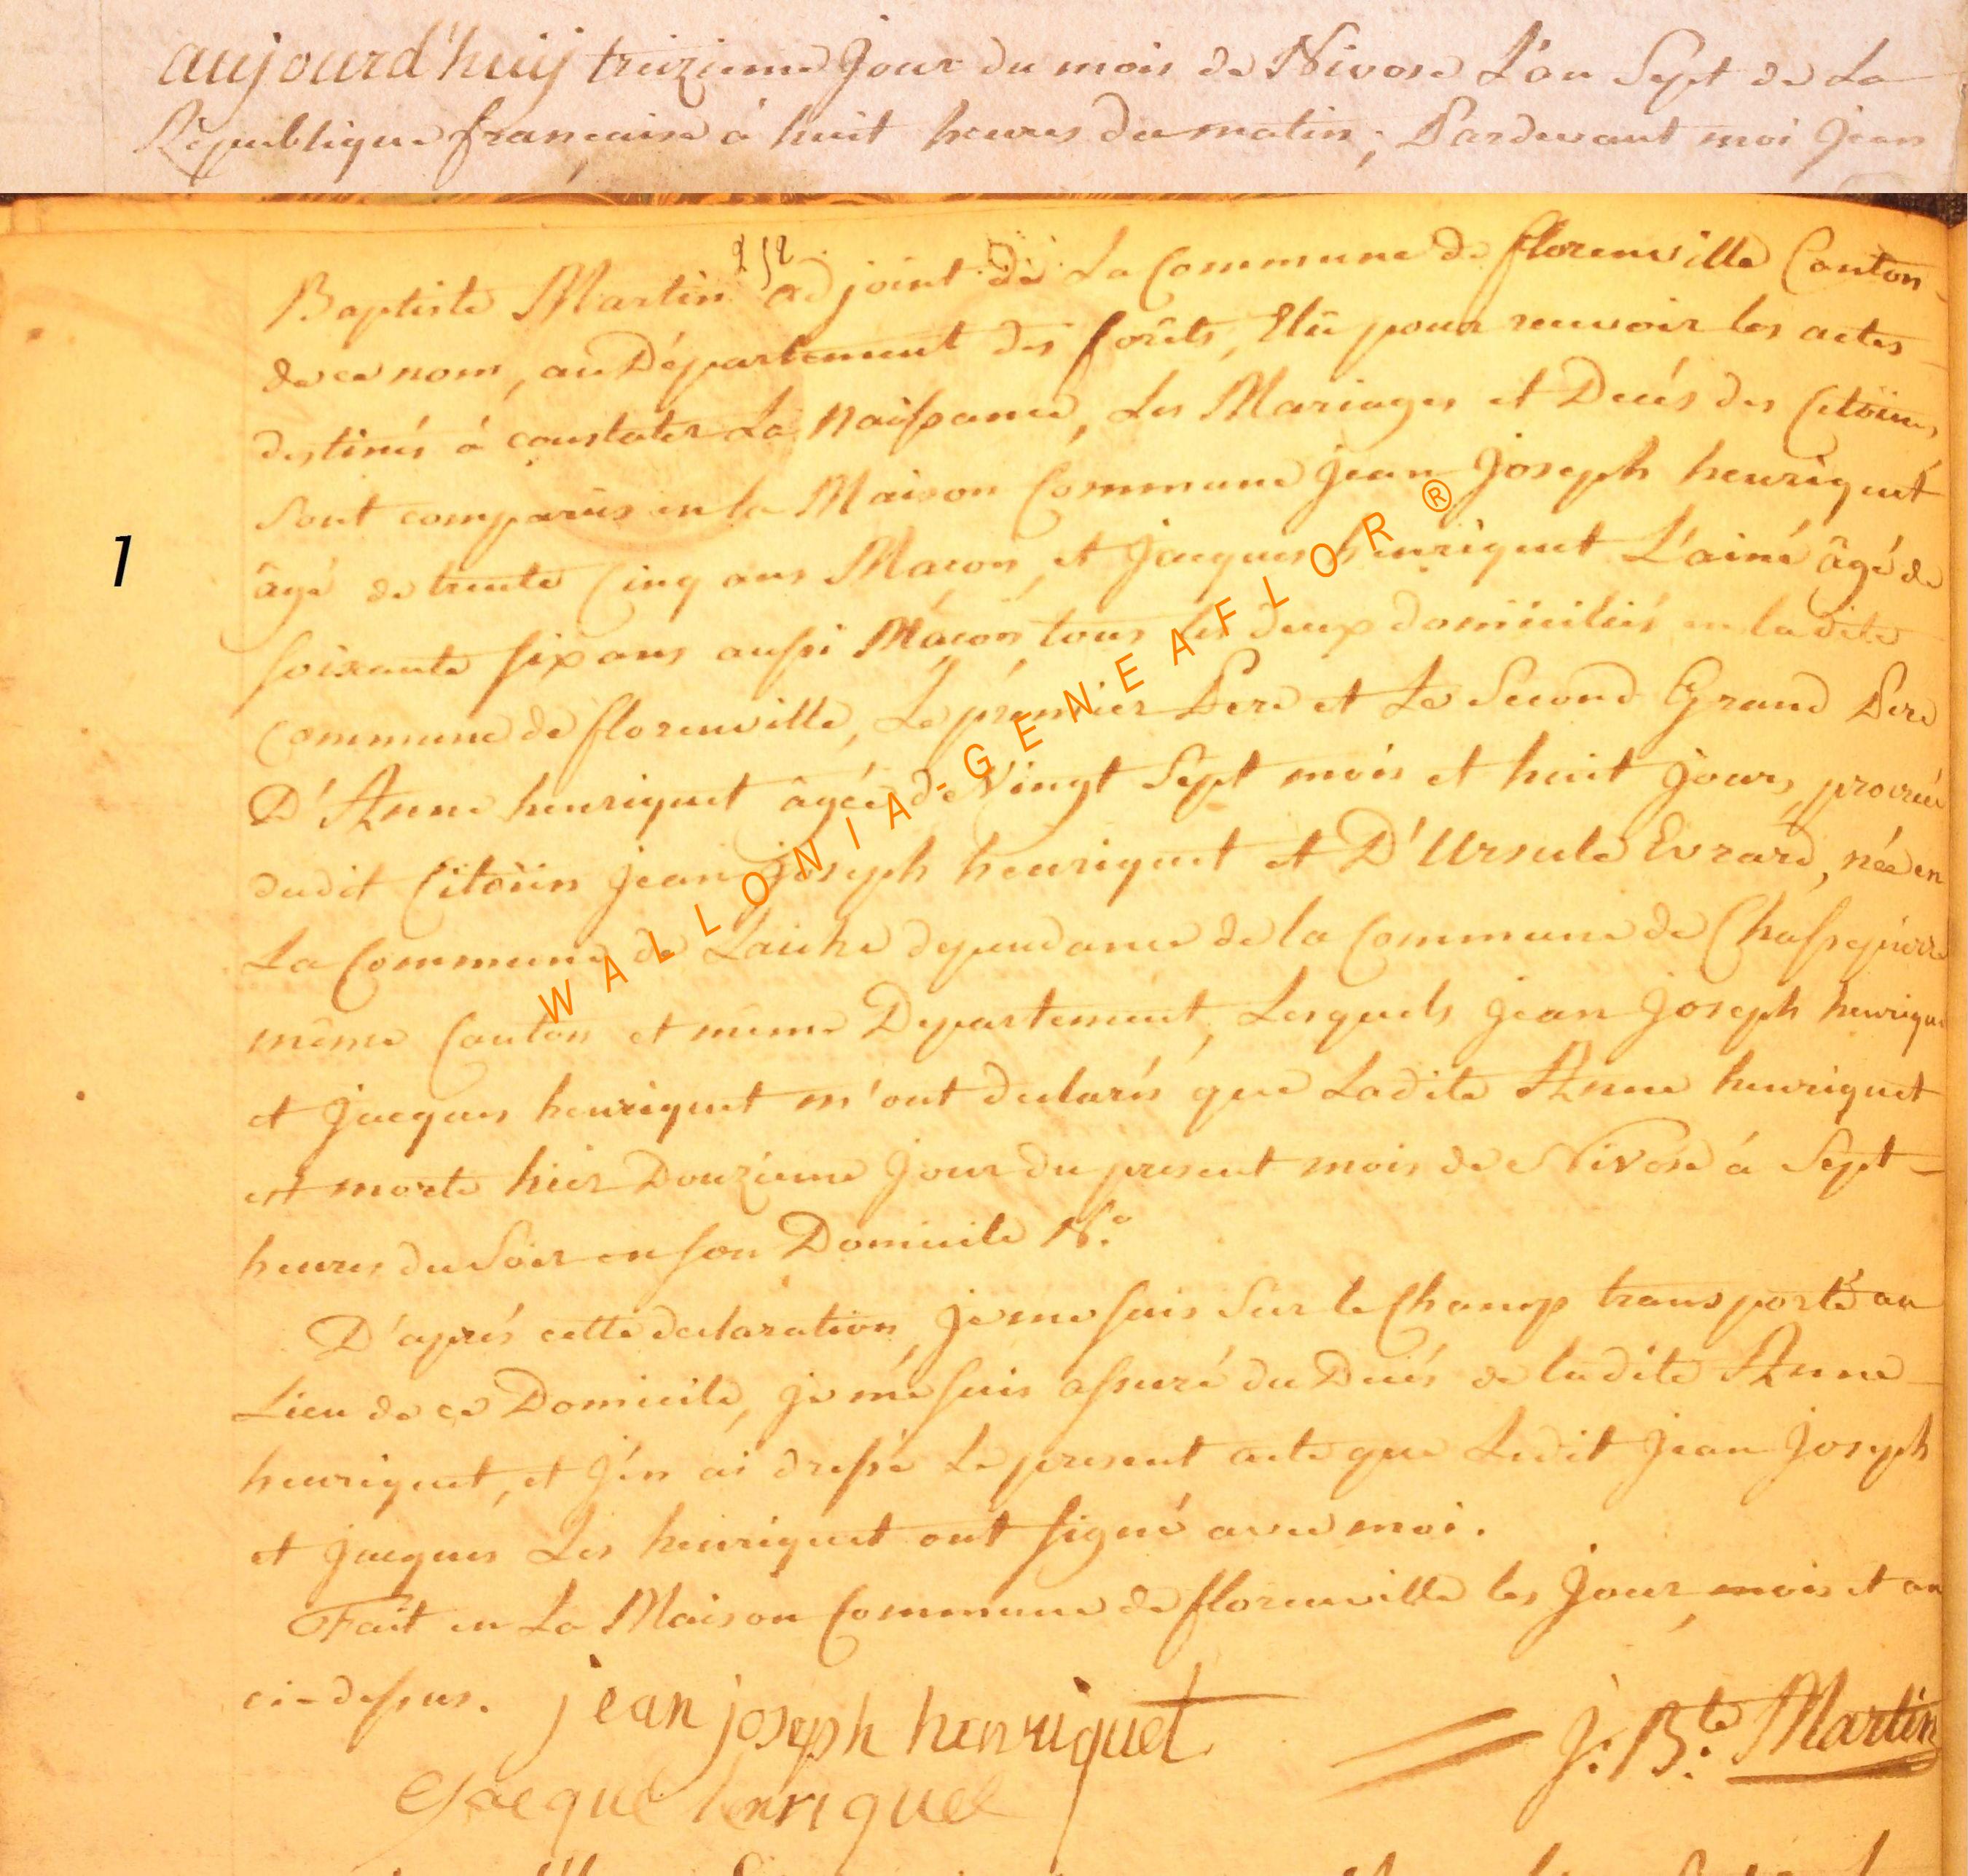 aujourd'huij treizieme Jour du mois de Nivose L'an Sept de La
République francaise à huit heures du matin; Pardevant moi Jean
Baptiste Martin adjoint de La Commune de florenville Canton
de ce nom, au Département des forêts, Elû pour recevoir les actes
destinés à constater La Naissance, Les Mariages et Decés des Citöiens
Sont comparûs en la Maison Commune Jean Joseph henriquet
âgé de trente Cinq ans Macon, et Jacques henriquet L'ainé âgé de
soixante six ans aussi Macon, tous les deux domiciliés en ladite
Commune de florenville, Le prémier Pere et Le Second Grand Pere
D'Anne henriquet âgée de Vingt Sept mois et huit Jours, procréée
dudit Citöien Jean Joseph henriquet et D'Ursule Evrard, née en
La Commune de Laiche dependance de la Commune de Chassepierre
même Canton et même Departement, Lesquels Jean Joseph henrique
et Jacques henriquet m'ont declarés que Ladite Anne henriquet
est morte hier Douzieme Jour du present mois de Nivose à Sept
heures du Soir en son Domicile N.°
D'aprés cette declaration, Je me suis Sur le Champ transporté au
Lieu de ce Domicile, je me suis assuré du Decés de ladite Anne
henriquet, et J'en ai dressé Le present acte que Ledit Jean Joseph
et Jacques Les henriquet ont signé avec moi.
Fait en La Maison Commune de florenville les Jour, mois et an
ci-dessus. jean joseph henriquet J: B.te Martin
Jacque henriquet
1
WALLONIA-GENEAFLOR ®